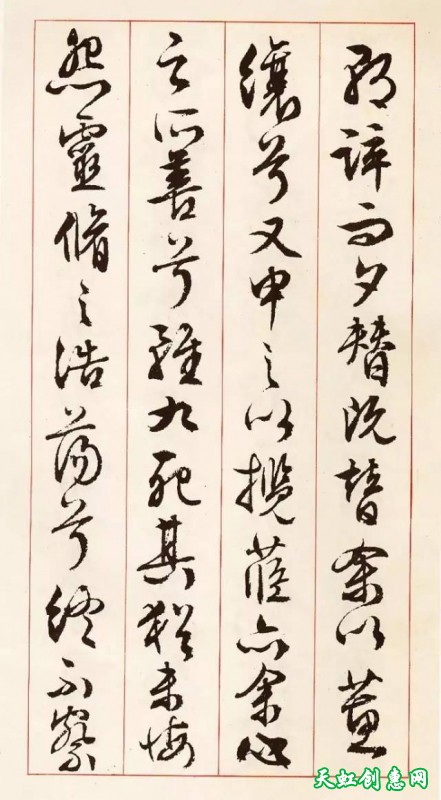 朝誶而夕替既替余以蕙
纕兮又申之以攬茝亦余心
之所善兮雖九死其猶未悔
怨靈脩之浩蕩兮終不察
天虹创惠网